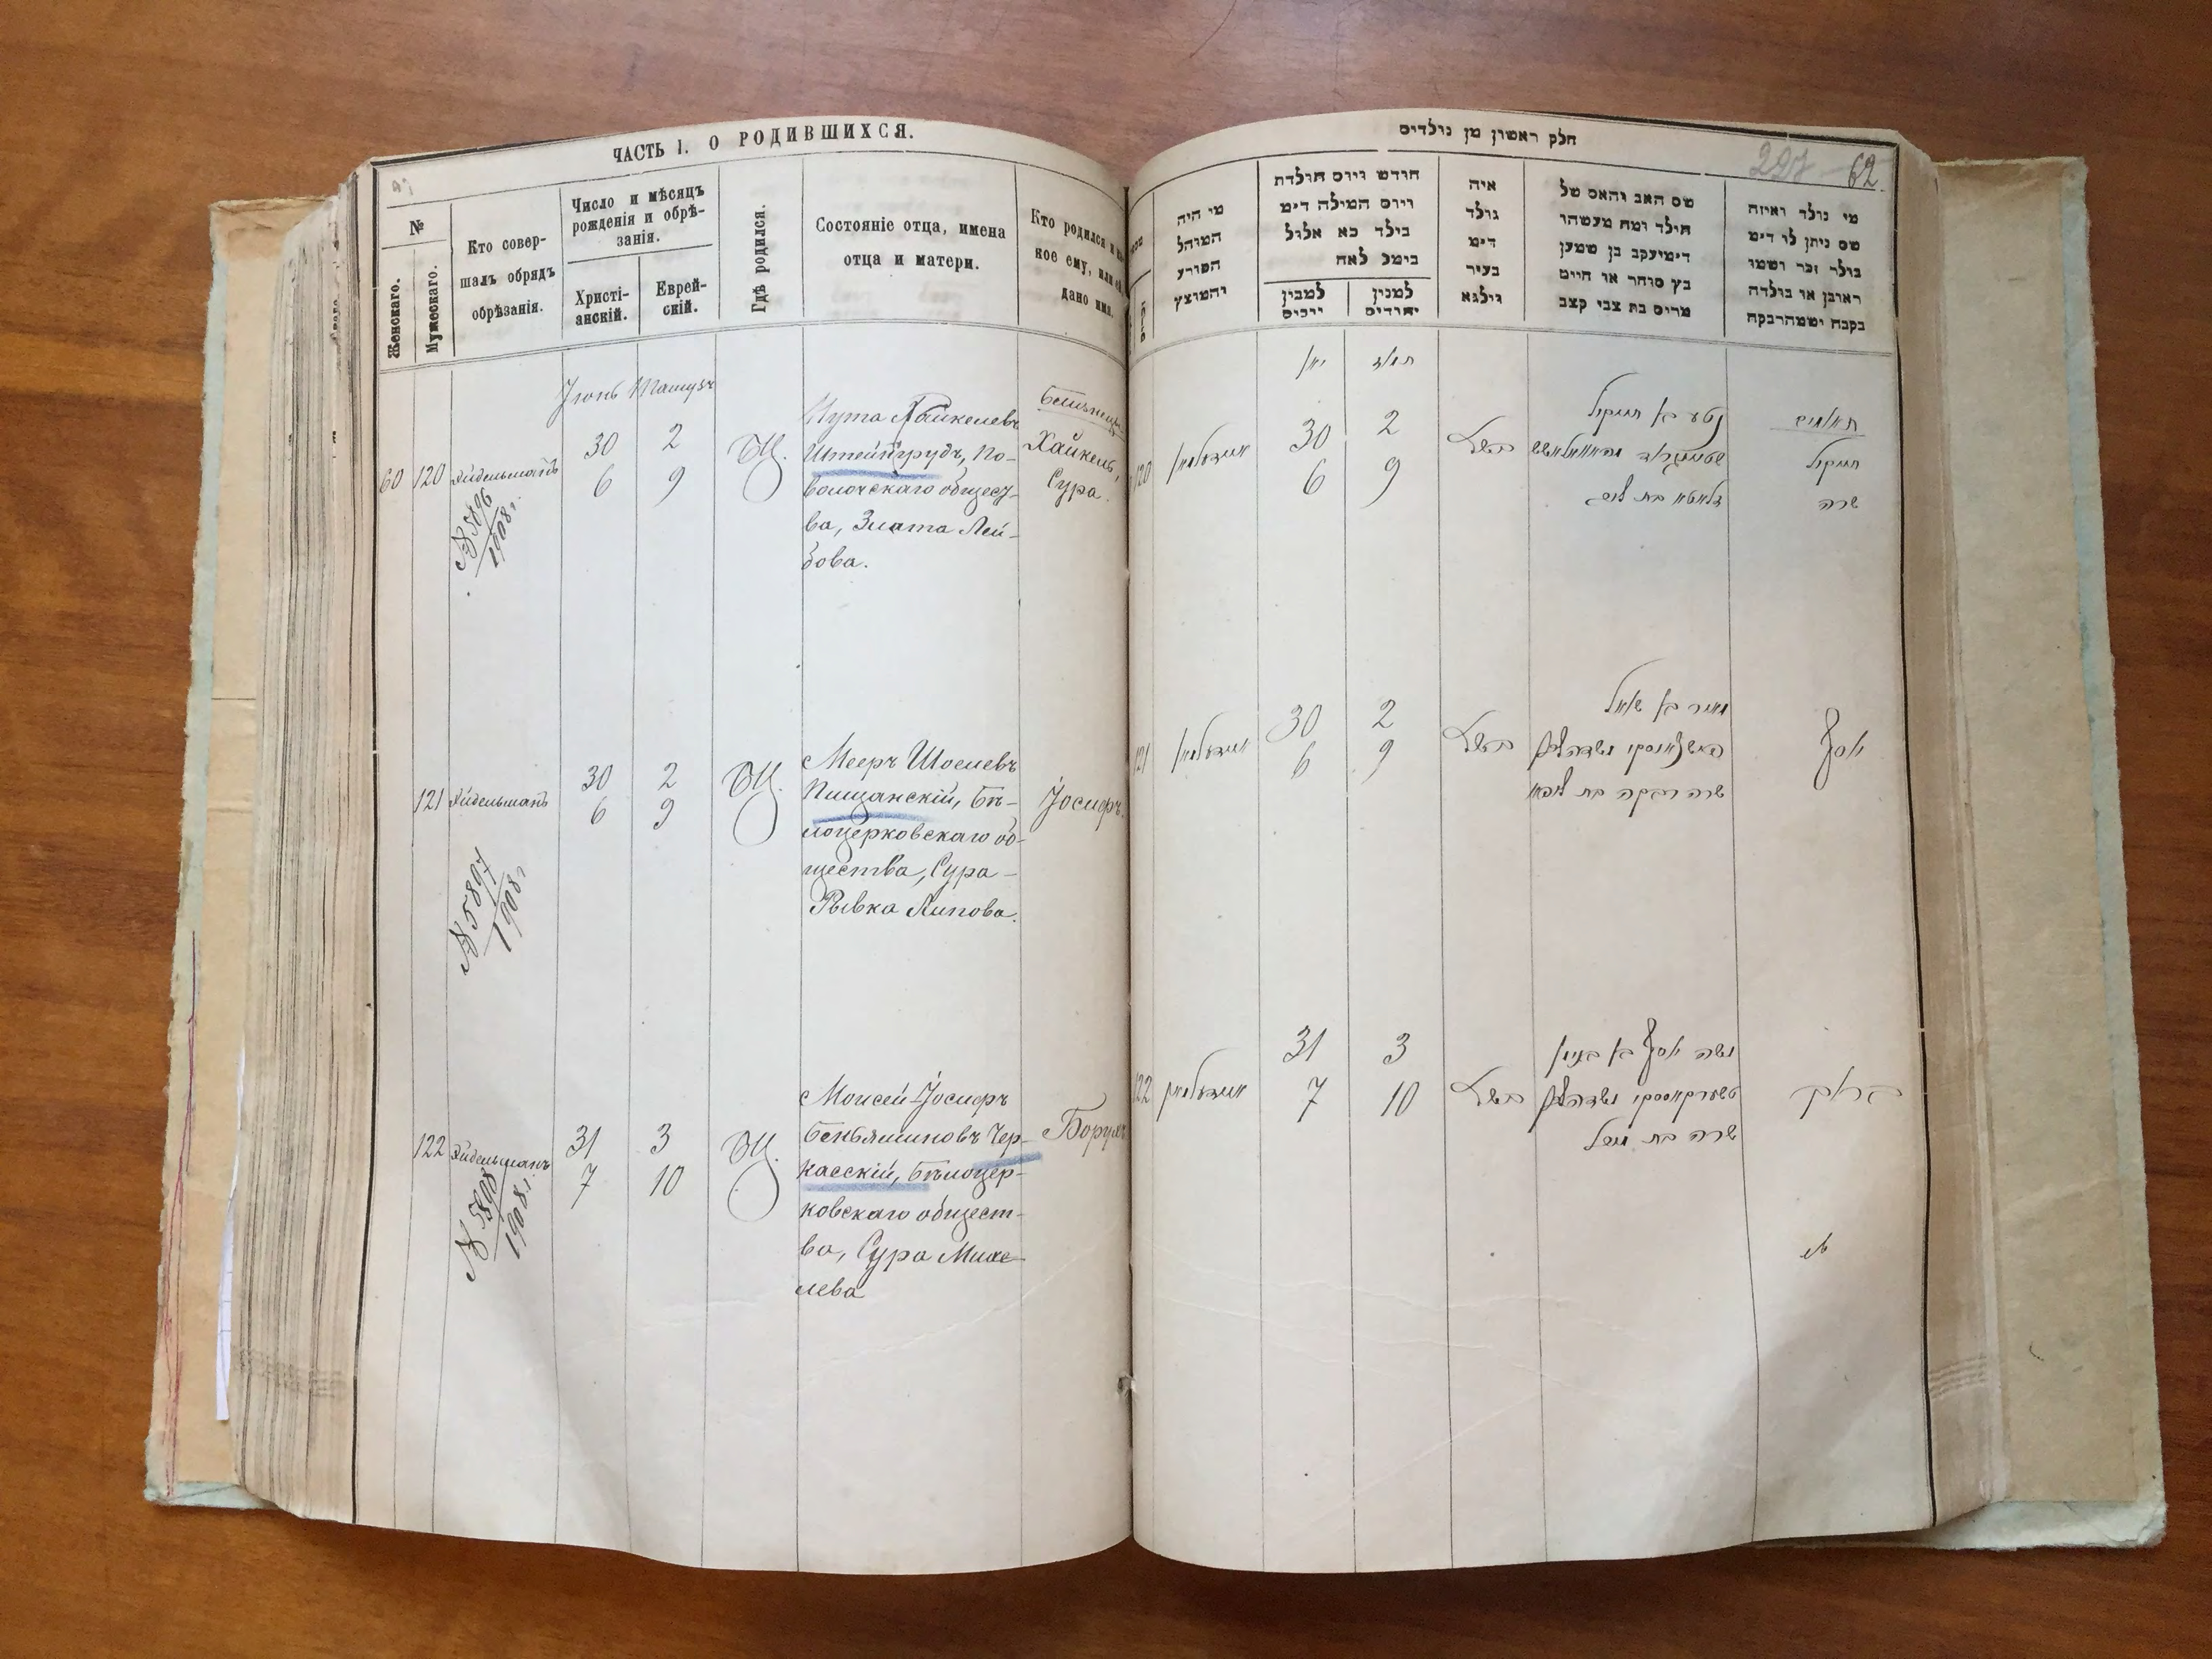 ЧАСТЬ I. О РОДИВШИХСЯ.
№
Женскаго.
Мужескаго.
Кто совер-
шалъ обрядъ
обрѣзанія.
Число и мѣсяцъ
рожденія и обрѣ-
занія.
Христі-
анскій.
Еврей-
скій.
Гдѣ родился.
Состояніе отца, имена
отца и матери.
Кто родился и ка-
кое ему, или ей
дано имя.
Іюнь Тамузъ
60 120 Айдельманъ
30 2
6 9
БЦ.
Нута Хайкелевъ
Штейнгрудъ, По-
волочскаго общест-
ва, Злата Лей-
бова.
Близнецы
Хайкель,
Сура.
№ 5896
1908 г.
121 Айдельманъ
30 2
6 9
БЦ.
Мееръ Шоелевъ
Пищанскій, Бѣ-
лоцерковскаго об-
щества, Сура-
Рывка Липова.
Іосифъ.
№ 5897
1908 г.
122 Айдельманъ
31 3
7 10
БЦ.
Моисей-Іосифъ
Беньяминовъ Чер-
касскій, Бѣлоцер-
ковскаго общест-
ва, Сура Михе-
лева
Борухъ
№ 5898
1908 г.
חלק ראשון מן נולדים
227 62.
מי היה
המוהל
הפורע
והמוצץ
חודש ויום תולדת
ויום המילה דימ
בילד כא אלול
בימל לאח
למבין
למנין
יהודים
איה
נולד
דימ
בעיר
ווילנא
שם האב והאם של
הילד ומה מעשהו
דימיעקב בן שמען
בץ סוחר או חיים
מרים בת צבי קצב
מי נולד ואיזה
שם ניתן לו דימ
בולד זכר ושמו
ראובן או בולדה
נקבה ושמהרבקה
120
30 2
6 9
נטע בן חייקיל
זלאטא בת ליב
תאומים
חייקיל
שרה
121
30 2
6 9
מאיר בן שאול
שרה רבקה בת ליפא
יוסף
122
31 3
7 10
משה יוסף בן בנימין
שרה בת מיכל
ברוך